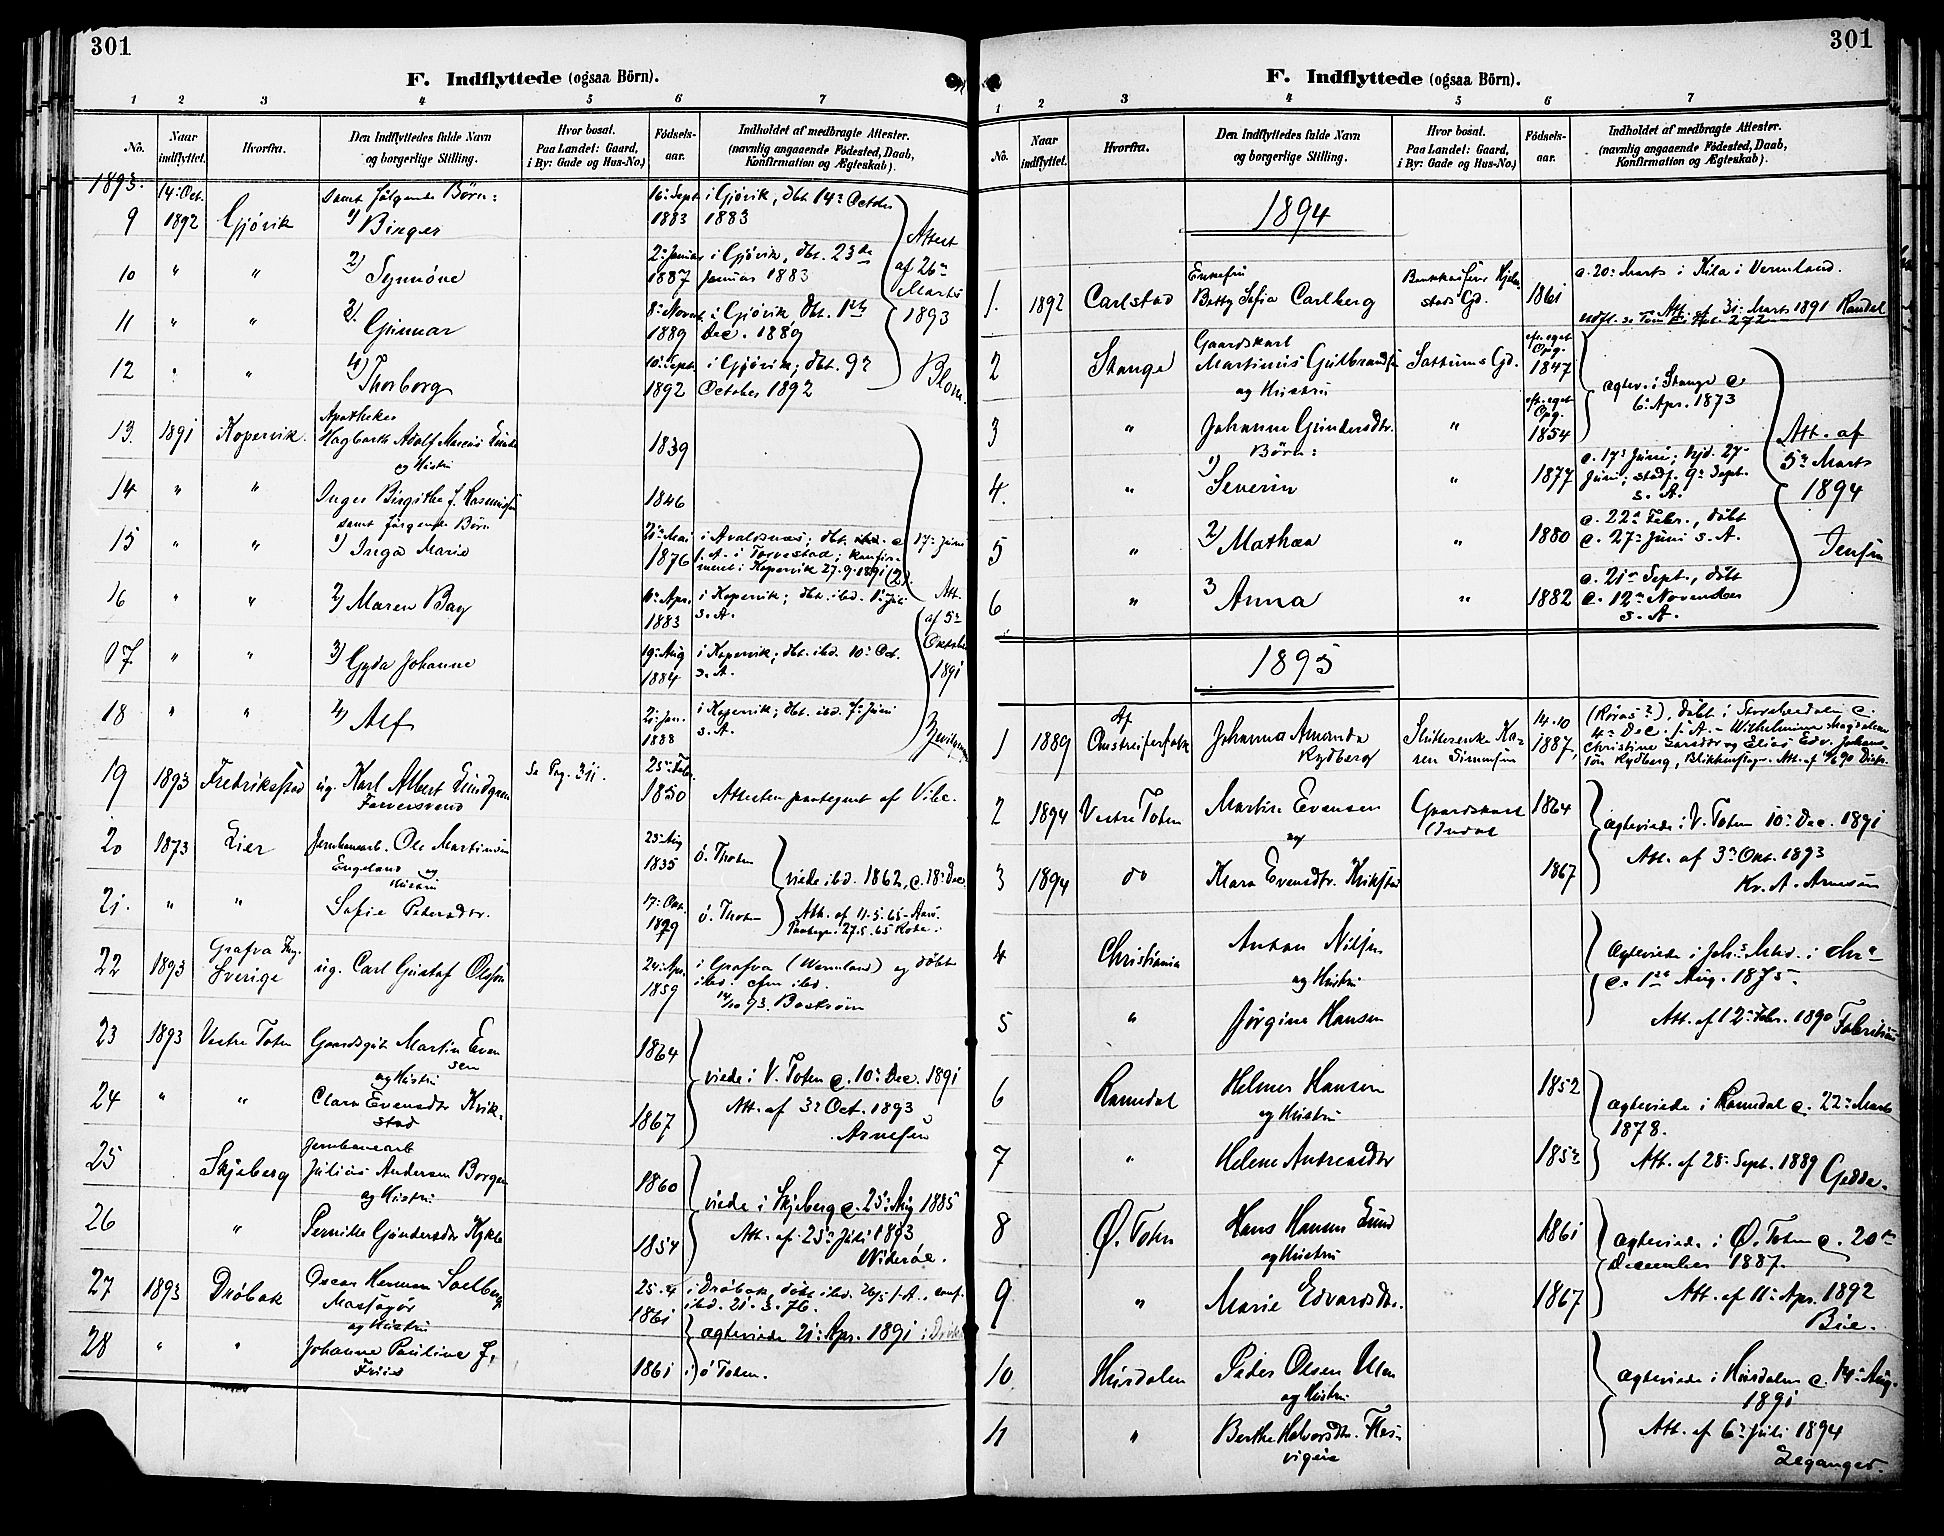 301
F. Indflyttede (ogsaa Börn).
1 2 3 4 5 6 7
No. Naar indflyttet. Hvorfra. Den Indflyttedes fulde Navn og borgerlige Stilling. Hvor bosat. Paa Landet: Gaard, i By: Gade og Hus-No.) Födsels-aar. Indholdet af medbragte Attester. (navnlig angaaende Födested, Daab, Konfirmation og Ægteskab).
1893. 14: Oct. samt følgende Börn: 16: Sept. i Gjövik, dbt. 14: October
9 1892 Gjövik 1) Birger 1883 1883
10 " " 2) Synnöve 2: Januar 1887 i Gjövik, dbt. 23de Januar 1883
Attest af 26: Marts 1893 Blom.
11 " " 3) Gunnar 8: Novmb. 1889 i Gjövik, dbt. 1ste Dec. 1889
12 " " 4) Thorborg 10: Sept. 1892 i Gjövik; dbt. 9: October 1892
13. 1891 Kopervik. Apotheker Hagbarth Adolf Marcus Lunde og Hustru 1839
14 " " Inger Birgithe f. Rasmussen 1846
samt følgende Börn
15 " " 1) Inga Marie 21: Mai 1876 i Avaldsnæs; dbt. 17: Juni s. A. i Torvestad; konfirmeret i Kopervik 27.9.1891 (2).
16 " " 2) Maren Bay 11: Apr. 1883 i Kopervik; dbt. ibd. 1: Juli s. A.
Att. af 5: Oktober 1891
17 " " 3) Gyda Johanne 19: Aug 1884 i Kopervik; dbt. ibd. 10: Oct. s. A.
18 " " 4) Alf 21: Jan. 1888 i Kopervik; dbt. ibd. 7: Juni s. A.
19 1893 Fredrikstad ug. Karl Albert Lindgren Farversvend Se Pag. 311. 25: Feb. 1850 Attesten paategnet af Vibe.
20 1873 Lier Jernbanearb. Ole Martinsen Engeland og Hustru 25: Aug 1835 Ö. Thoten
viede ibd. 1862, c. 18: Dec.
21. " " Sofie Petersdtr. 17: Oct. 1829 Ö. Thoten Att. af 11.5.65
Paategn. 27.5.65
22 1893 Grafva Sverige ug. Carl Gustaf Olsson 24: Apr. 1859 i Grafva (Wermland) og döbt ibd. cfm ibd. 14/10 93. Boström
23 1893 Vestre Toten Gaardsgut Martin Evensen og Hustru 1864
viede i V. Toten c. 10: Dec. 1891
24 " " Clara Evensdtr Kvikstad 1867 Att. af 3: Oct. 1893 Arnesen
25 Skjeberg Jernbanearb Julius Andersen Borgen og Hustru 1860
viede i Skjeberg c. 25: Aug 1885
26 " Pernille Gundersdtr 1854 Att. af 25: Juli 1893 Wideröe.
27 1893 Dröbak Oscar Herman Solberg og Hustru 25.4 1861 i Dröbak, döbt ibd. 26/5 s. A., conf. ibd. 21.3.76.
ægteviede 21: Apr. 1891 i Dröbak
28 " " Johanne Pauline f. Friis 1861 i Ö Toten.
301
F. Indflyttede (ogsaa Börn).
1 2 3 4 5 6 7
No. Naar indflyttet. Hvorfra. Den Indflyttedes fulde Navn og borgerlige Stilling. Hvor bosat. Paa Landet: Gaard, i By: Gade og Hus-No.) Födsels-aar. Indholdet af medbragte Attester. (navnlig angaaende Födested, Daab, Konfirmation og Ægteskab).
1894
1. 1892 Carlstad Enkefru Betty Sofia Carlberg 1861 c. 20: Marts i Kila i Vermland.
Att. af 31: Marts 1891
2 Stange Gaardskarl Martinus Gulbrandsen og Hustru Sattums Gd. eft. eget Opg. 1847
ægtev. i Stange c. 6: Apr. 1873
3 " Johanne Gundersdtr. " eft. eget Opg. 1854
Börn:
4. " 1) Severin " 1877 c. 17: Juni; hjd. 27: Juni; stadf. 9: Sept. s. A.
Att. af 5: Marts 1894 Jensen
5 " 2) Mathea " 1880 c. 22: Febr., döbt c. 27: Juni s. A.
6 " 3 Anna " 1882 c. 21: Sept., döbt c. 12: November s. A.
1895
1 1889 Af Omstreiferfolk Johanna Amanda Rydberg Karen Simensen 14.10 1887, (Röros?), döbt i c. 4: Dec. s. A. - Wilhelmine Magdalene Christine Larsdtr og Elias Edv. Johansson Rydberg,
2 1894 Vestre Toten Martin Evensen og Gaardskarl 1864
ægteviede i V. Toten 10: Dec. 1891
Att. af 3: Okt. 1893
3 1894 do Klara Evensdtr. Kvikstad 1867 Kr. A. Arnesen
4 Christiania Anton Nilsen og Hustru ægteviede i Joh: Mkd. i Chra c. 1ste Aug. 1875.
5 " Jörgine Hansen Att. af 12: Febr. 1890 Fabritius
6 Ramdal Helmer Hansen og Hustru 1852
ægteviede i Ramdal c. 22: Marts 1878.
7 " Helene Andreasdtr 1852 Att. af 28: Sept. 1889 Gedde.
8 Ö. Toten Hans Hansen Lund og Hustru 1861 ægteviede i Ö. Toten c. 20de December 1887.
9 " Marie Edvardsdtr. 1867 Att. af 11: Apr. 1892 Bie.
10 Hurdalen Peder Olsen og Hustru ægteviede i Hurdalen c. 14: Aug. 1891
11 " Berthe Halvorsdtr. Att. af 6: Juli 1894 Leganger.